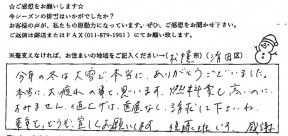 ☆ご感想をお願いします☆
今シーズンの排雪はいかがでしたか?
お客様の声が、私たちの原動力になっています。ぜひ、ご感想をお聞かせ下さい。
ご返信は郵送またはFAX(011-879-1951)にてお願い致します。
※差支えなければ、お住まいの地域をご記入ください(札幌市)(清田区)
今年の冬は大雪で本当に、ありがとうございました。
本当に、お疲れの事と思います。燃料費も高いのに
されません。値上げは、遠慮なく、請求して下さいね。
来年も、どうぞ、宜しくお願いします。 です。感謝